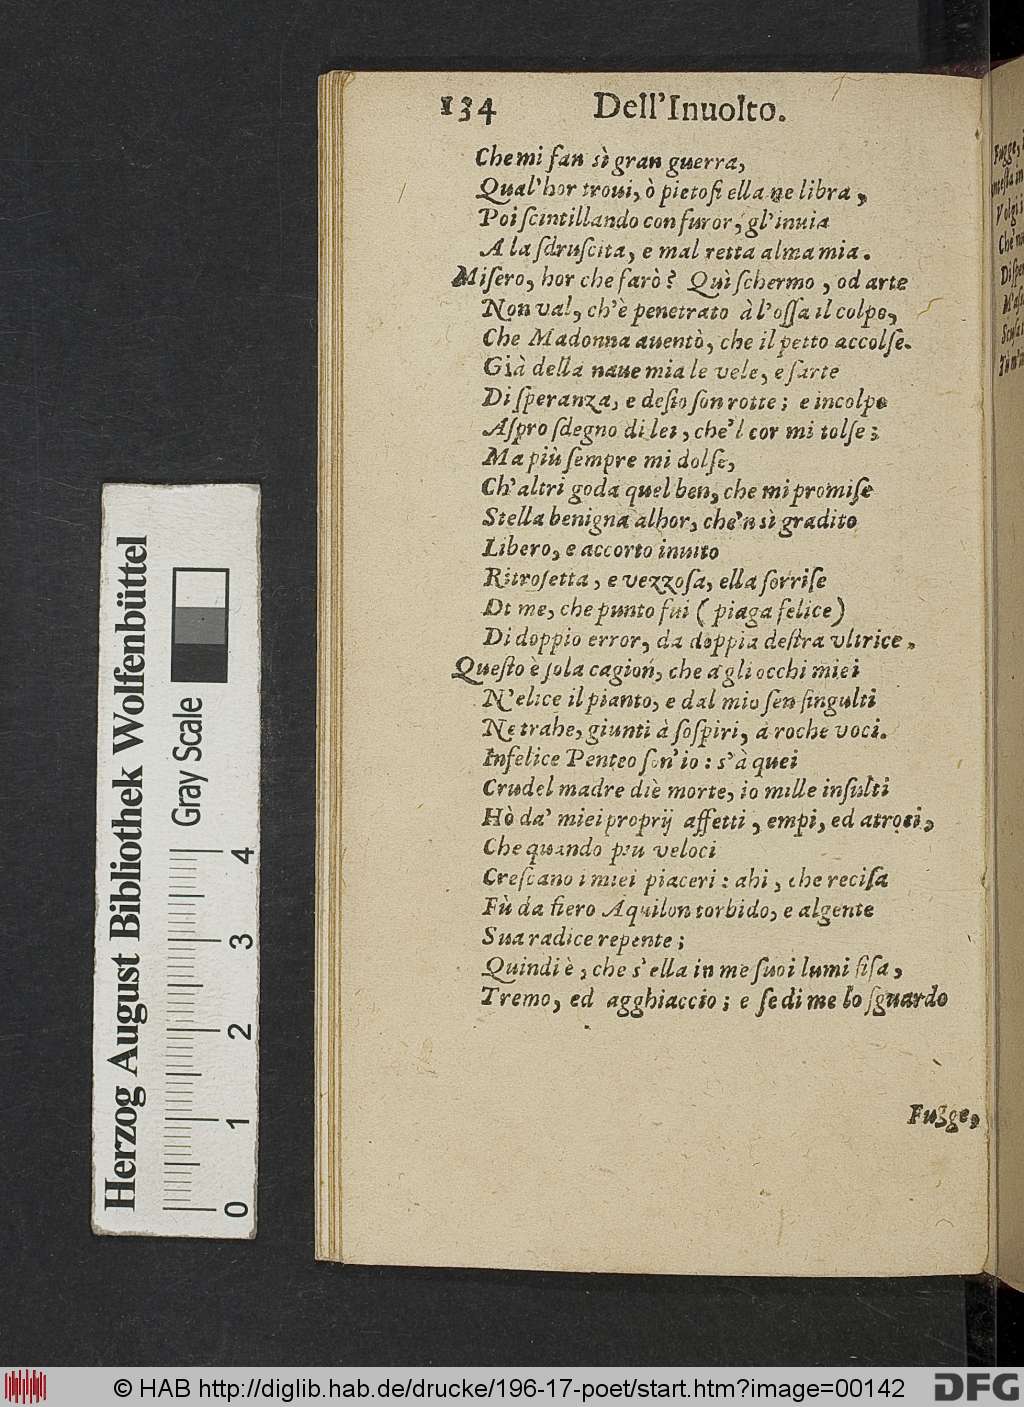 134 Dell'Inuolto.
Che mi fan sì gran guerra,
Qual'hor troui, ò pietosi ella ne libra,
Poi scintillando con furor, gl'inuia
A la sdruscita, e mal retta alma mia.
Misero, hor che farò? Quì schermo, od arte
Non val, ch'è penetrato à l'ossa il colpo,
Che Madonna auentò, che il petto accolse.
Già della naue mia le vele, e sarte
Di speranza, e desio son rotte; e incolpo
Aspro sdegno di lei, che'l cor mi tolse;
Ma più sempre mi dolse,
Ch'altri goda quel ben, che mi promise
Stella benigna alhor, che'n sì gradito
Libero, e accorto inuito
Ritrosetta, e vezzosa, ella sorrise
Di me, che punto fui (piaga felice)
Di doppio error, da doppia destra vltrice.
Questo è sola cagion, che a gli occhi miei
N'elice il pianto, e dal mio sen singulti
Ne trahe, giunti à sospiri, a roche voci.
Infelice Penteo son'io: s'à quei
Crudel madre diè morte, io mille insulti
Hò da' miei proprij affetti, empi, ed atroci,
Che quando più veloci
Crescano i miei piaceri: ahi, che recisa
Fù da fiero Aquilon torbido, e algente
Sua radice repente;
Quindi è, che s'ella in me suoi lumi fisa,
Tremo, ed agghiaccio; e se di me lo sguardo
Fugge,
Fugge,
Volgi
Herzog August Bibliothek Wolfenbüttel
Gray Scale
0 1 2 3 4
© HAB http://diglib.hab.de/drucke/196-17-poet/start.htm?image=00142
DFG